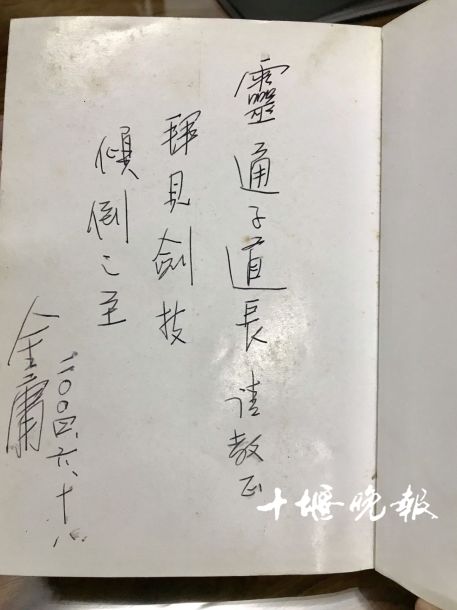 靈通子道長请教正
見劍技
傾倒之至
二〇〇四、六、十八
金庸
十堰晚報